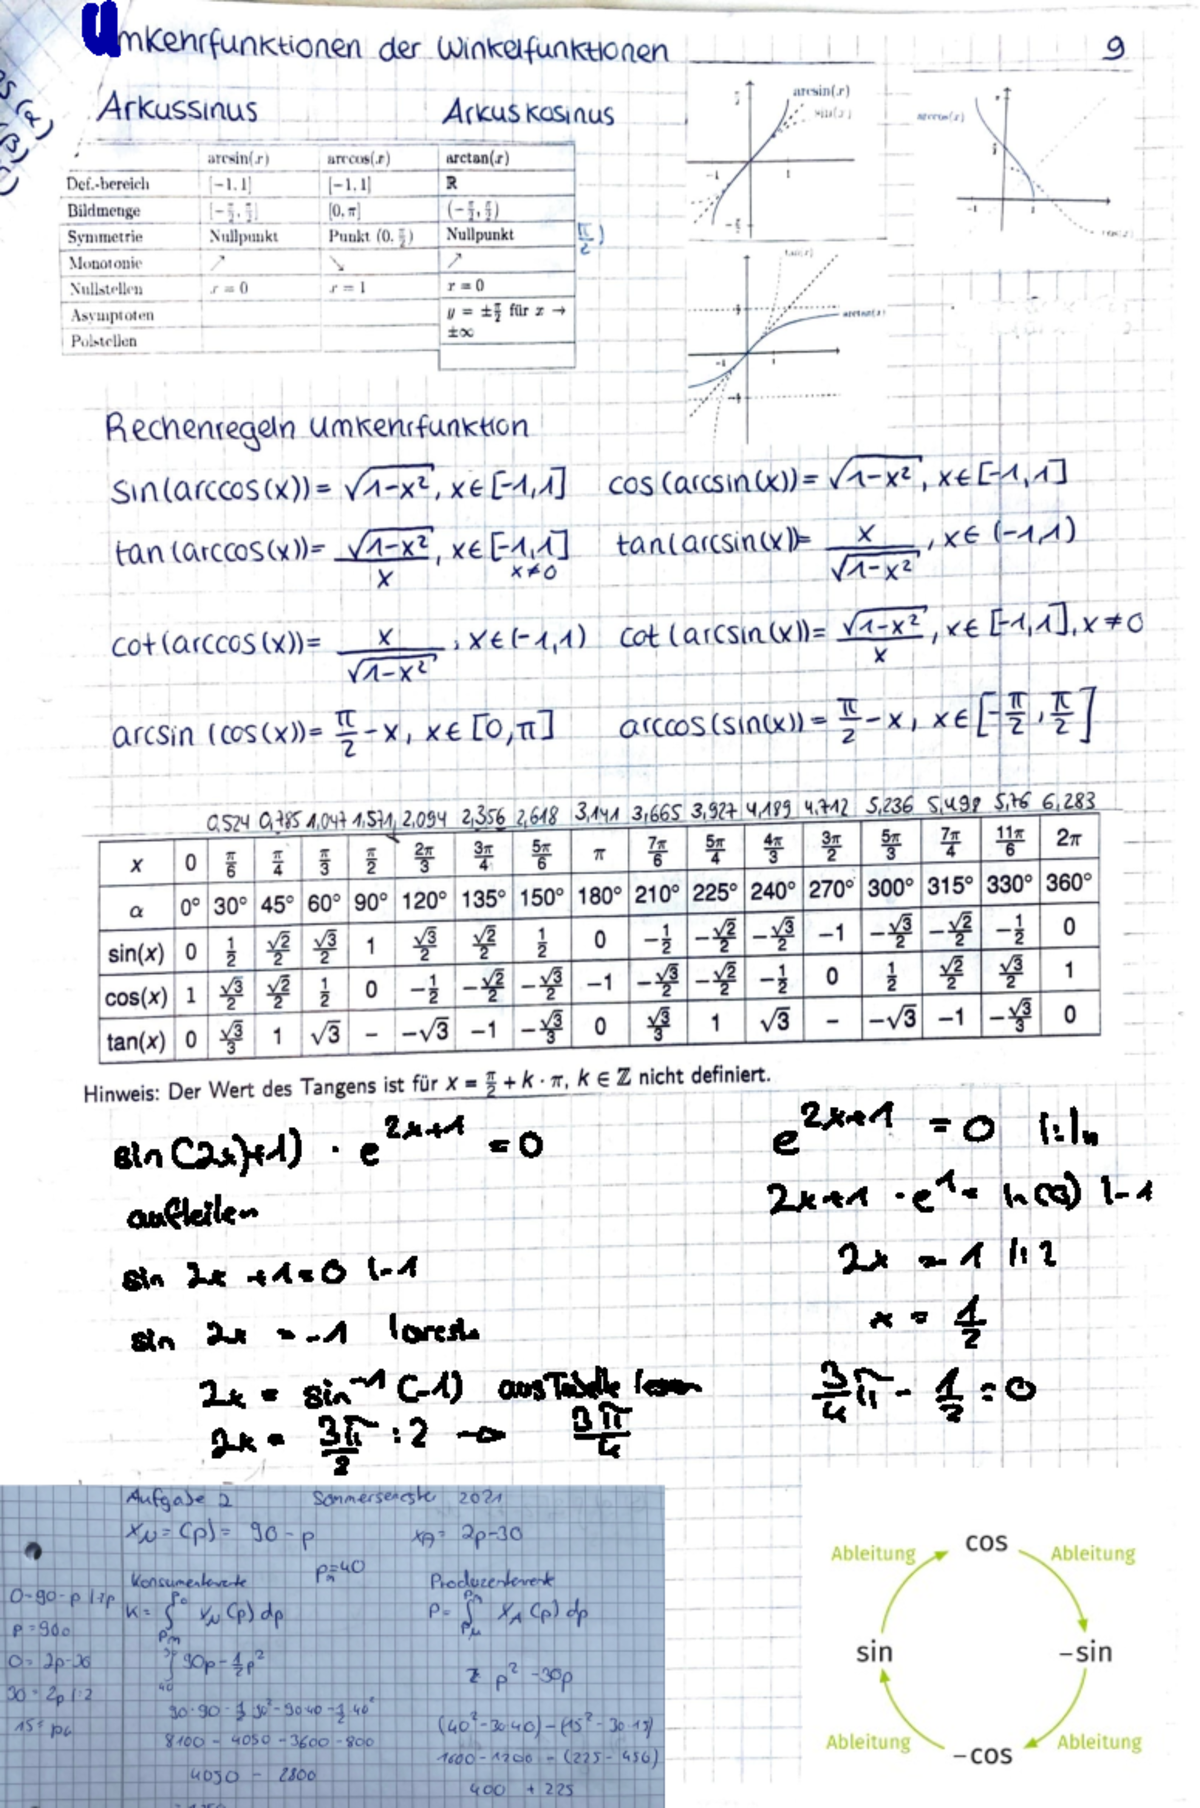 Umkehrfunktionen der Winkelfunktionen 9
Arkussinus Arkuskosinus
arcsin(x) arccos(x) arctan(x)
Def.-bereich [−1, 1] [−1, 1] ℝ
Bildmenge [−π/2, π/2] [0, π] (−π/2, π/2)
Symmetrie Nullpunkt Punkt (0, π/2) Nullpunkt
Monotonie ↗ ↘ ↗
Nullstellen x = 0 x = 1 x = 0
Asymptoten y = ±π/2 für x → ±∞
Polstellen
π/2)
arcsin(x)
sin(x)
−1 1
arccos(x)
cos(x)
−1 1
tan(x)
arctan(x)
−1 1
Rechenregeln Umkehrfunktion
sin(arccos(x)) = √(1−x²), x∈[−1,1] cos(arcsin(x)) = √(1−x²), x∈[−1,1]
tan(arccos(x)) = √(1−x²)/x, x∈[−1,1] x≠0 tan(arcsin(x)) = x/√(1−x²), x∈(−1,1)
cot(arccos(x)) = x/√(1−x²), x∈(−1,1) cot(arcsin(x)) = √(1−x²)/x, x∈[−1,1], x≠0
arcsin(cos(x)) = π/2 − x, x∈[0,π] arccos(sin(x)) = π/2 − x, x∈[−π/2, π/2]
0,524 0,785 1,047 1,571 2,094 2,356 2,618 3,141 3,665 3,927 4,189 4,712 5,236 5,498 5,76 6,283
x 0 π/6 π/4 π/3 π/2 2π/3 3π/4 5π/6 π 7π/6 5π/4 4π/3 3π/2 5π/3 7π/4 11π/6 2π
α 0° 30° 45° 60° 90° 120° 135° 150° 180° 210° 225° 240° 270° 300° 315° 330° 360°
sin(x) 0 1/2 √2/2 √3/2 1 √3/2 √2/2 1/2 0 −1/2 −√2/2 −√3/2 −1 −√3/2 −√2/2 −1/2 0
cos(x) 1 √3/2 √2/2 1/2 0 −1/2 −√2/2 −√3/2 −1 −√3/2 −√2/2 −1/2 0 1/2 √2/2 √3/2 1
tan(x) 0 √3/3 1 √3 – −√3 −1 −√3/3 0 √3/3 1 √3 – −√3 −1 −√3/3 0
Hinweis: Der Wert des Tangens ist für x = π/2 + k · π, k ∈ ℤ nicht definiert.
sin(2x)+1) · e^(2x+1) = 0
aufteilen
sin 2x + 1 = 0 |−1
sin 2x = −1
2x = sin⁻¹ (−1) aus Tabelle lesen
2x = 3π/2 : 2 → 3π/4
e^(2x+1) = 0 |:ln
2x+1 · e¹ = ln(0) |−1
2x = 1 |:2
x = 1/2
3/4 π − 1/2 = 0
Aufgabe 2 Sommersemester 2021
x_N = (p) = 90 − p x_A = 2p−30
p_n=40
Konsumentenrente Produzentenrente
K = ∫ x_N (p) dp P = ∫ x_A (p) dp
90p − 1/2p²
p² − 30p
90·90 − 1/2 90² − 90·40 − 1/2 40²
(40² − 30·40) − (15² − 30·15)
8100 − 4050 − 3600 − 800
1600 − 1200 − (225 − 450)
4050 − 2800
400 + 225
0=90−p
0=2p−30
30=2p |:2
cos
Ableitung Ableitung
sin −sin
Ableitung Ableitung
−cos